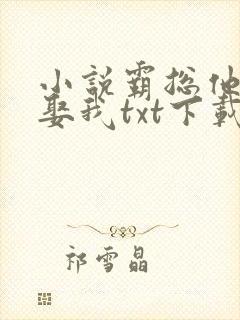 小说霸总他
娶我txt下载
祁雪晶